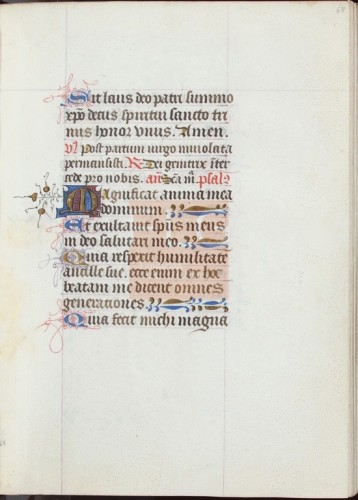 Sit laus deo patri summo
xpo decus spiritui sancto tri
nus honor vnus. Amen.
V. Post partum uirgo inuiolata
permansisti. R. Dei genitrix iter
cede pro nobis. an. Sca m. psal.
Magnificat anima mea
dominum.
Et exultauit spūs meus
in deo salutari meo.
Quia respexit humilitatē
ancille sue. ecce enim ex hoc
beatam me dicent omnes
generationes.
Quia fecit michi magna